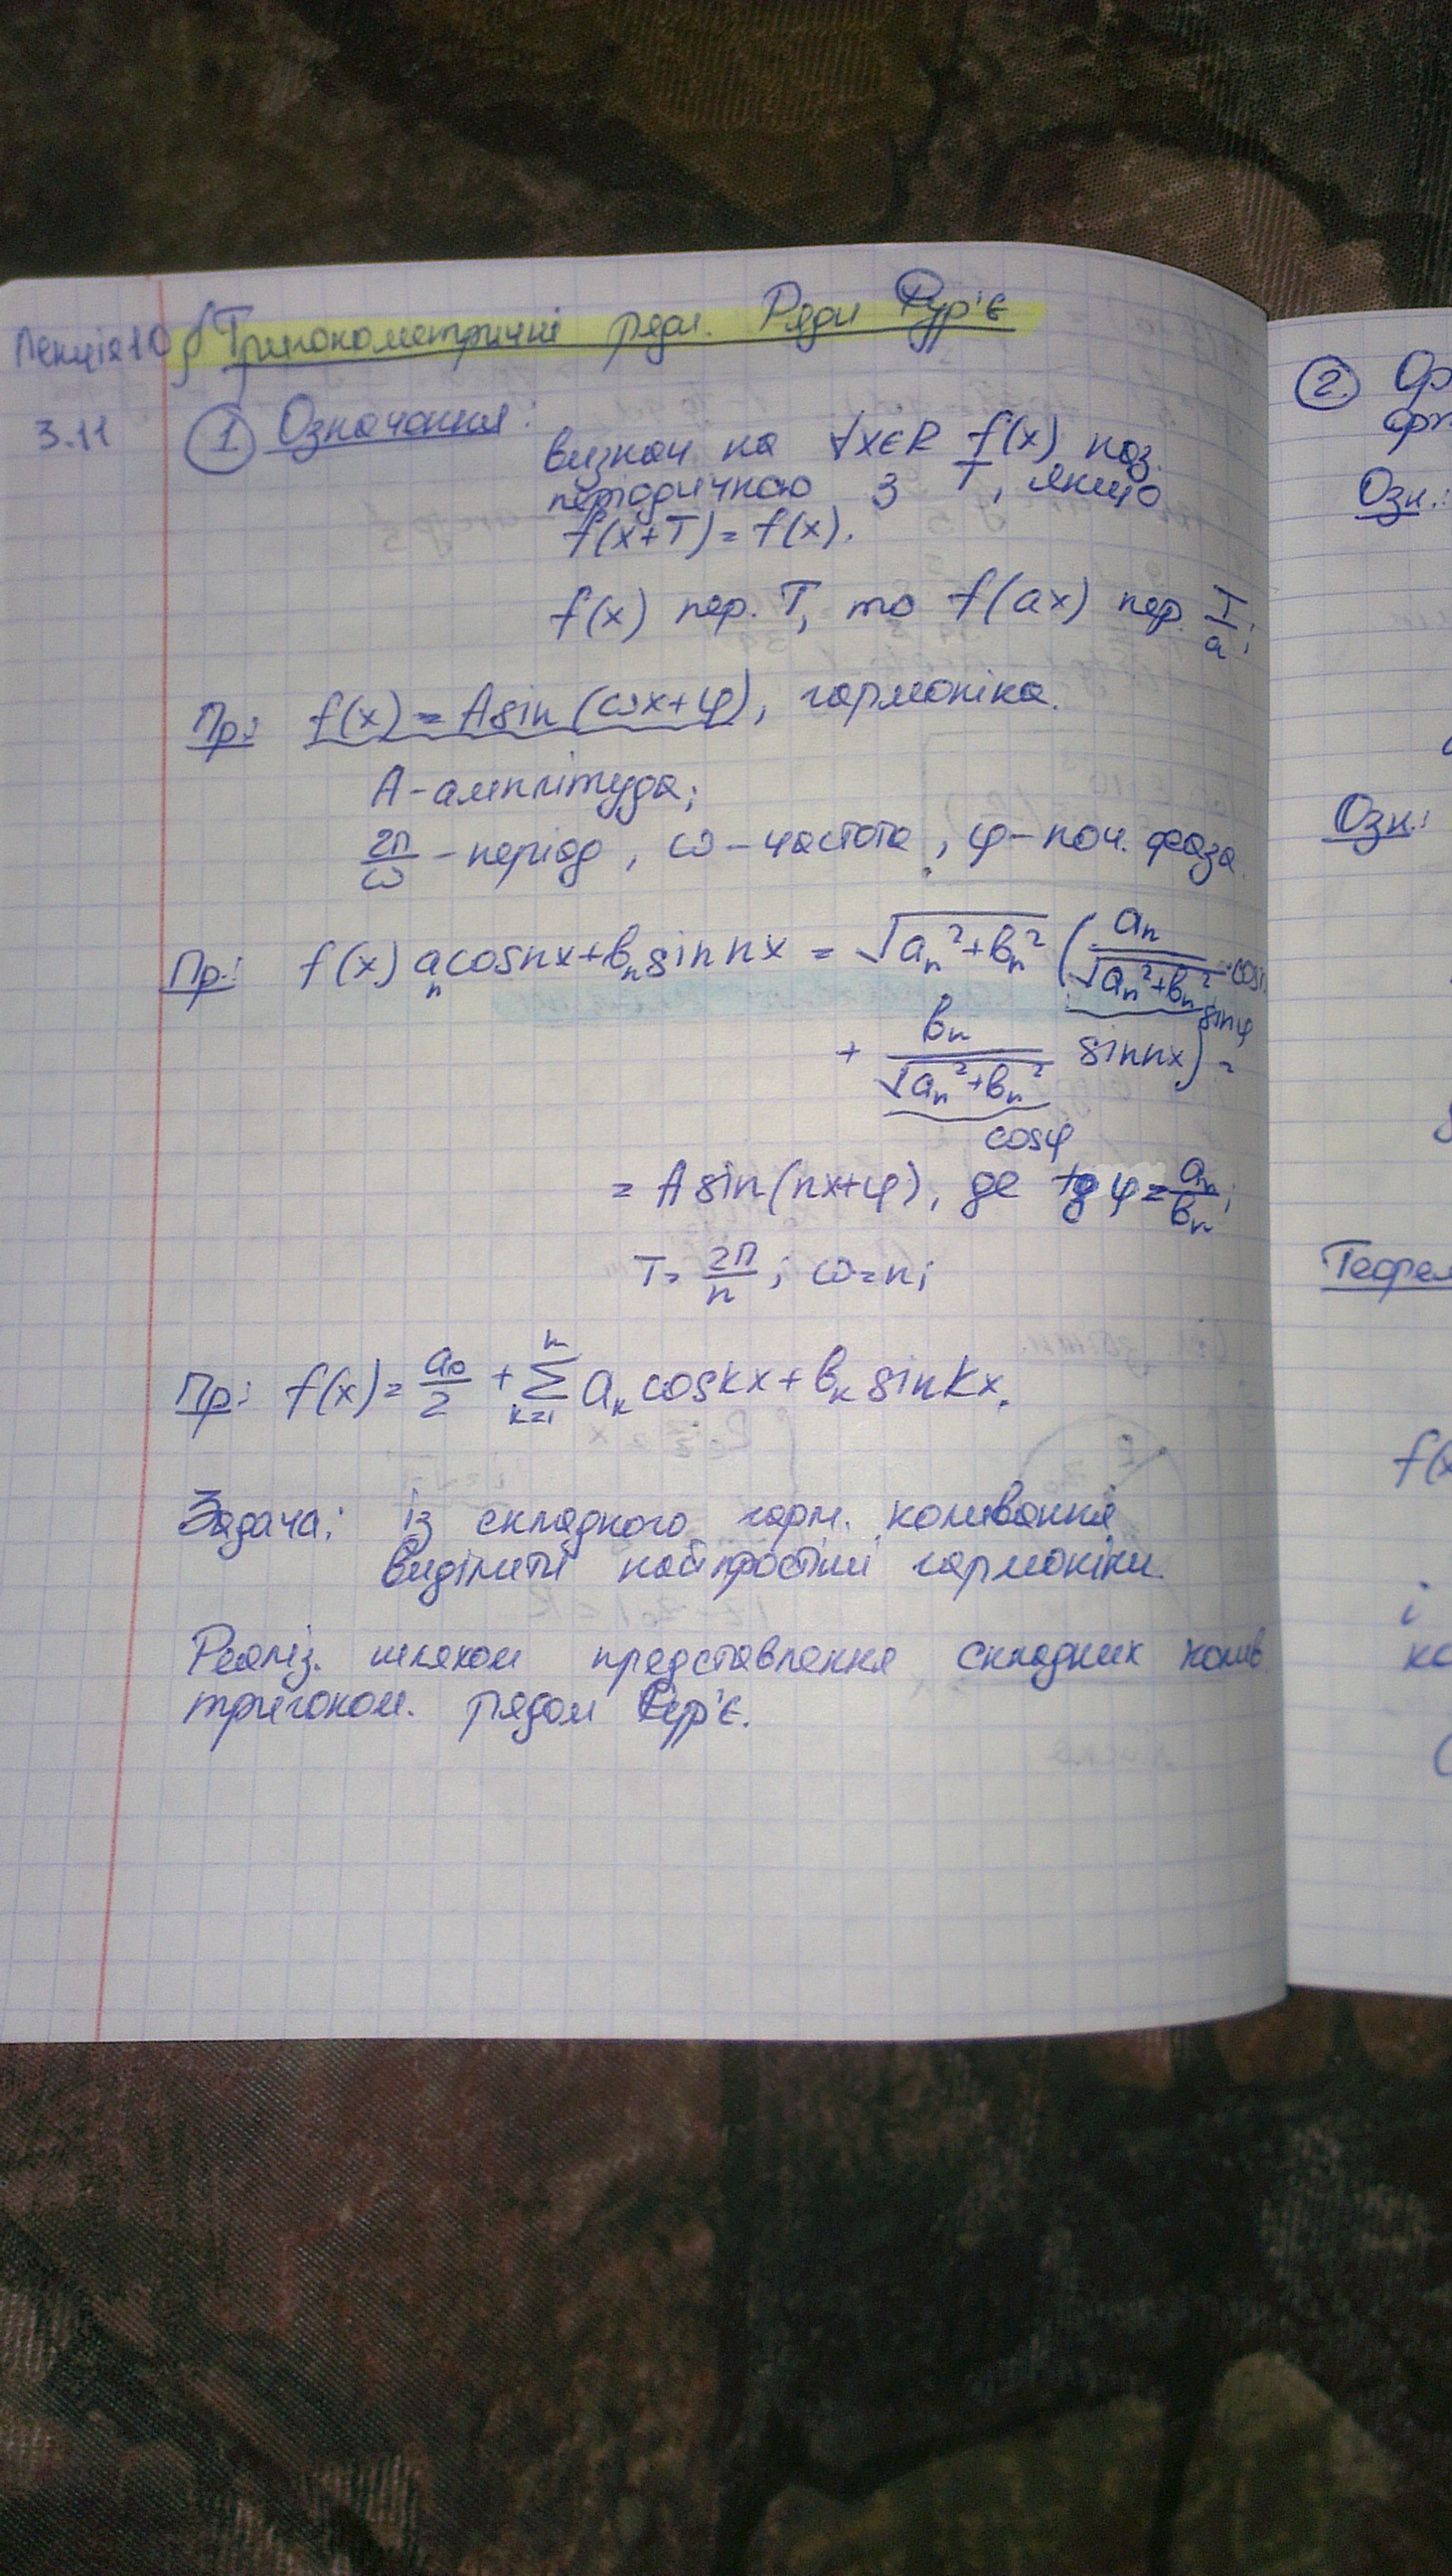 Лекція 10 § Тригонометричні ряди. Ряди Фур'є
3.11 ① Означення:
визнач на ∀x∈R f(x) наз.
періодичною з T, якщо
f(x+T) = f(x).
f(x) пер. T, то f(ax) пер. T/a;
Пр: f(x) = A sin(ωx+φ), гармоніка.
A - амплітуда;
2π/ω - період, ω - частота, φ - поч. фаза.
Пр: f(x) aₙcosnx + bₙsin nx = √(aₙ²+bₙ²) (aₙ/√(aₙ²+bₙ²) · cosn
sinφ
+ bₙ/√(aₙ²+bₙ²) sin nx) =
cosφ
= A sin(nx+φ), де tg φ = aₙ/bₙ;
T = 2π/n; ω = n;
Пр: f(x) = a₀/2 + ∑ₖ₌₁ⁿ aₖ cos kx + bₖ sin kx.
Задача: із складного гарм. коливання
виділити найпростіші гармоніки.
Реаліз. шляхом представлення складних колив.
тригоном. рядом Фур'є.
② Ор
Озн.:
Озн.:
Теорем
f(x
і